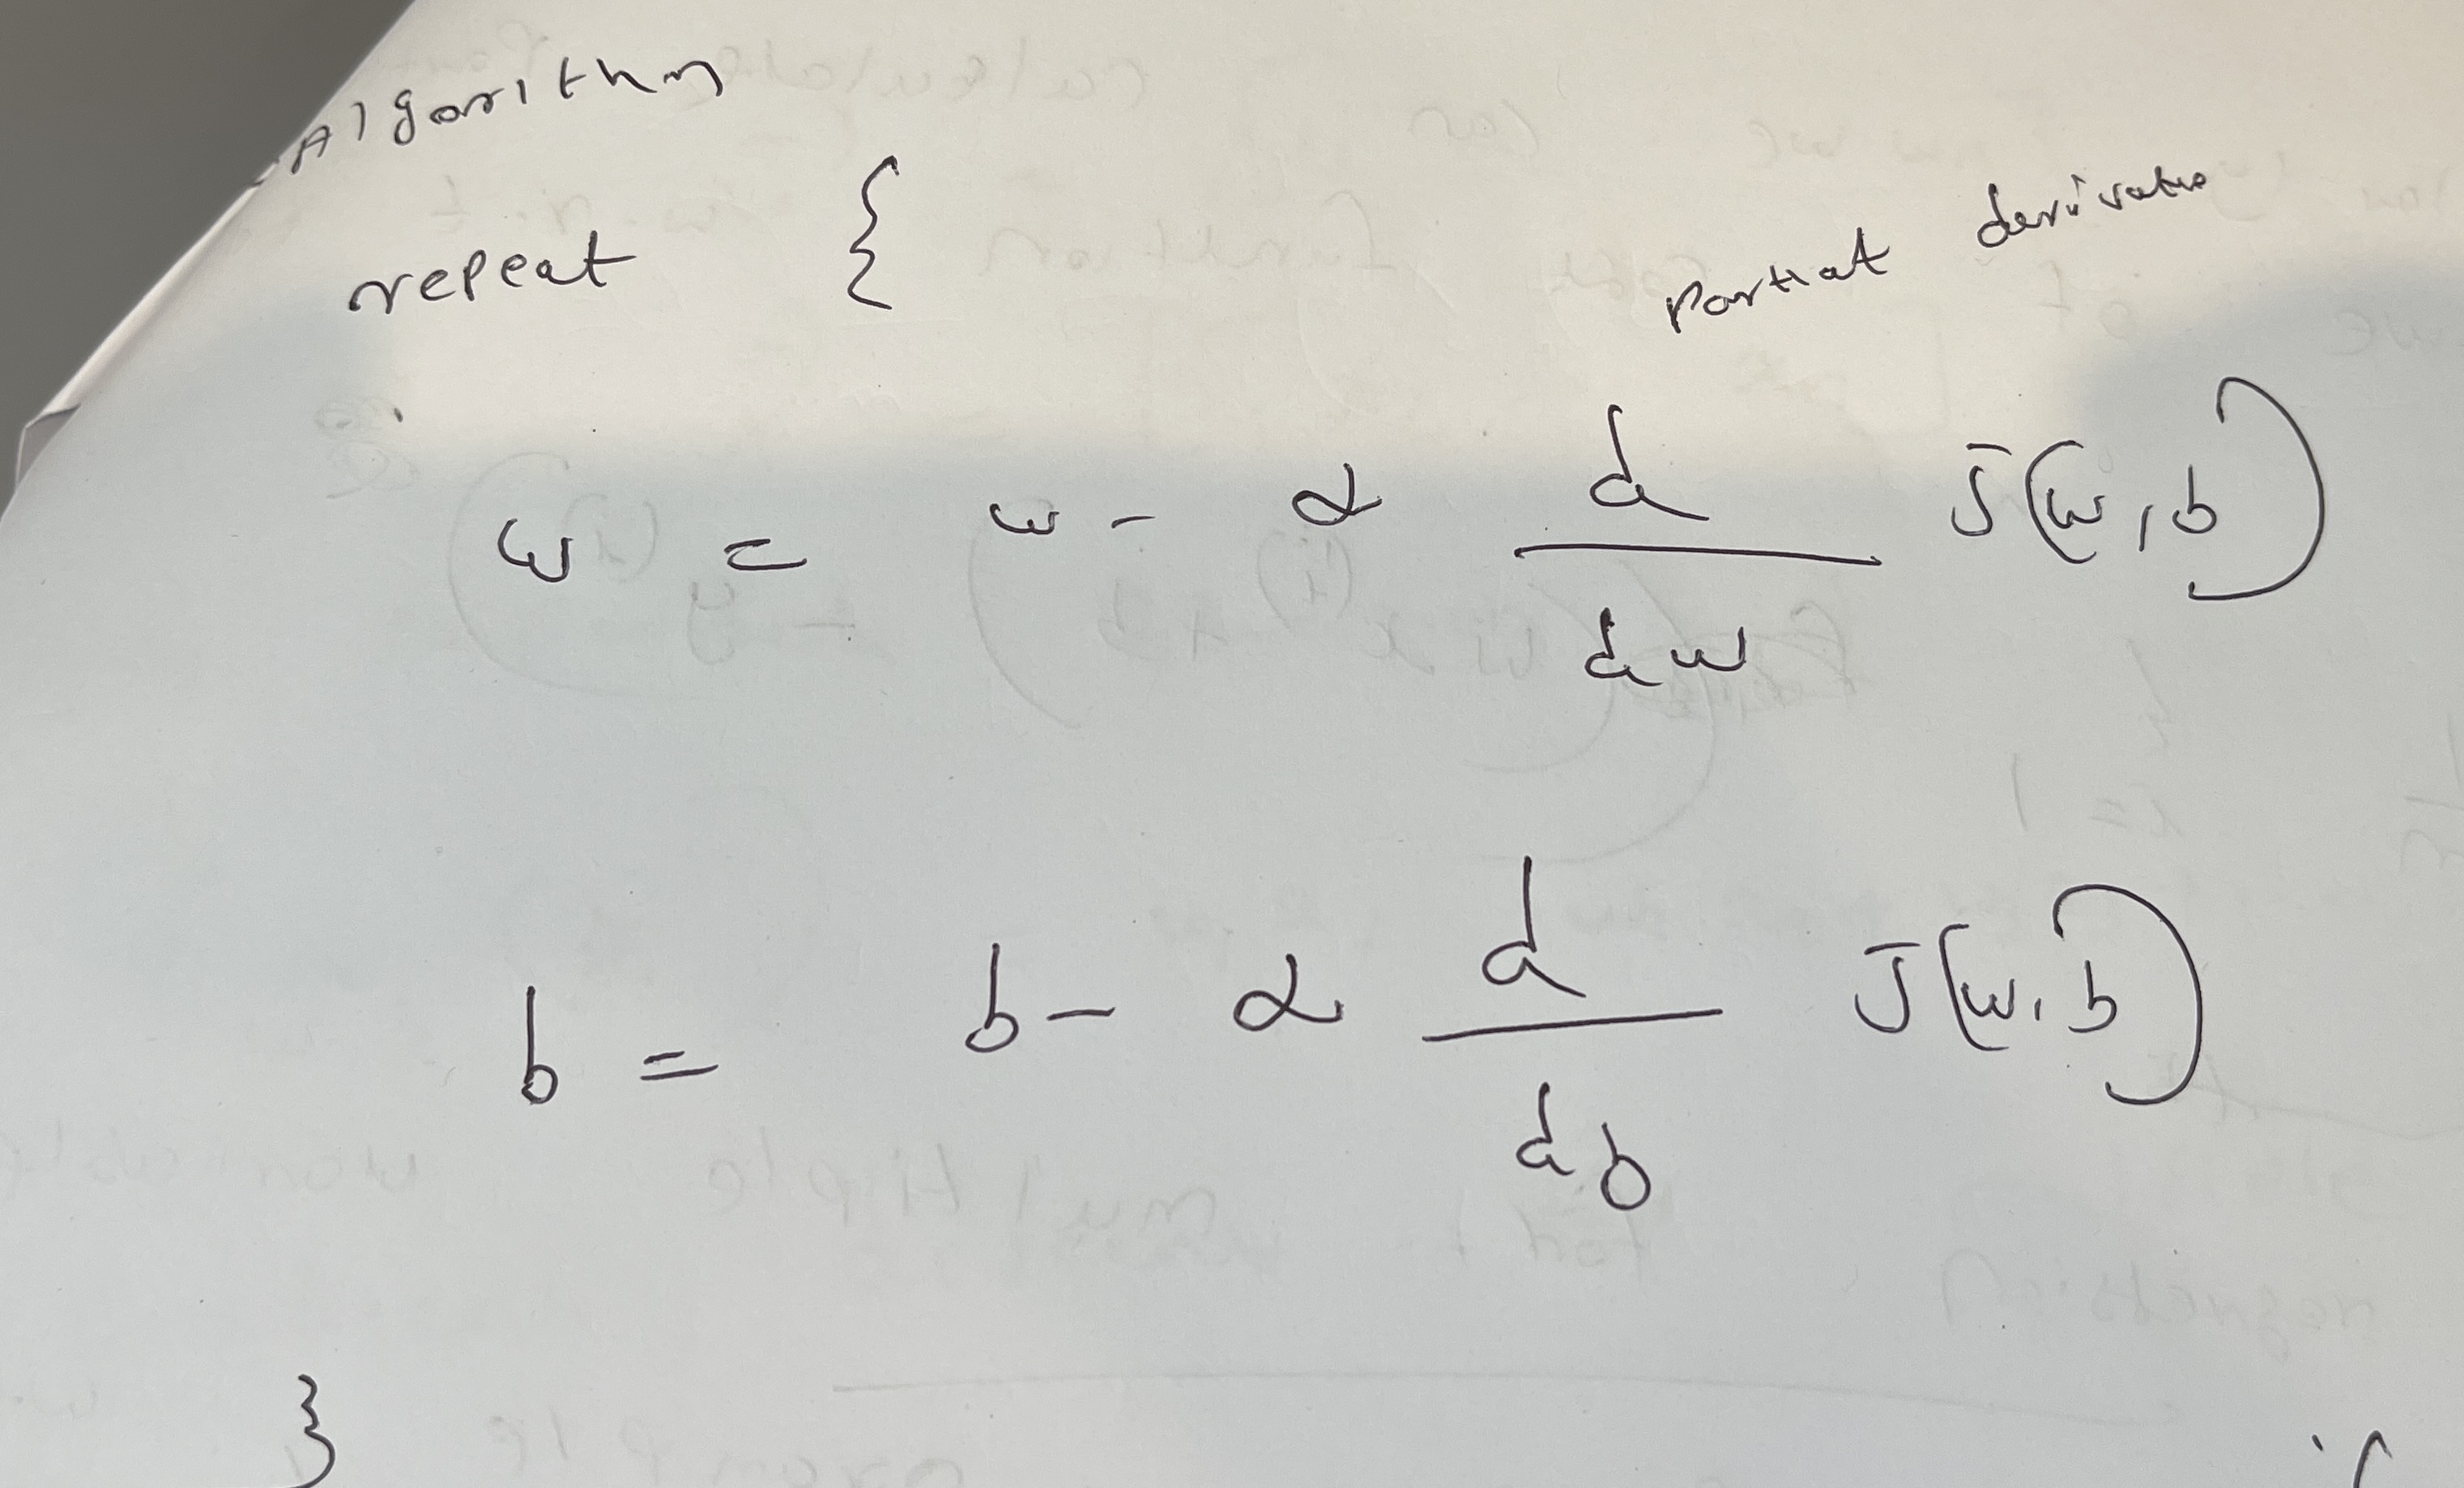 Algorithm
repeat {
partial derivative
w = w - α d/dw J(w, b)
b = b - α d/db J(w, b)
}